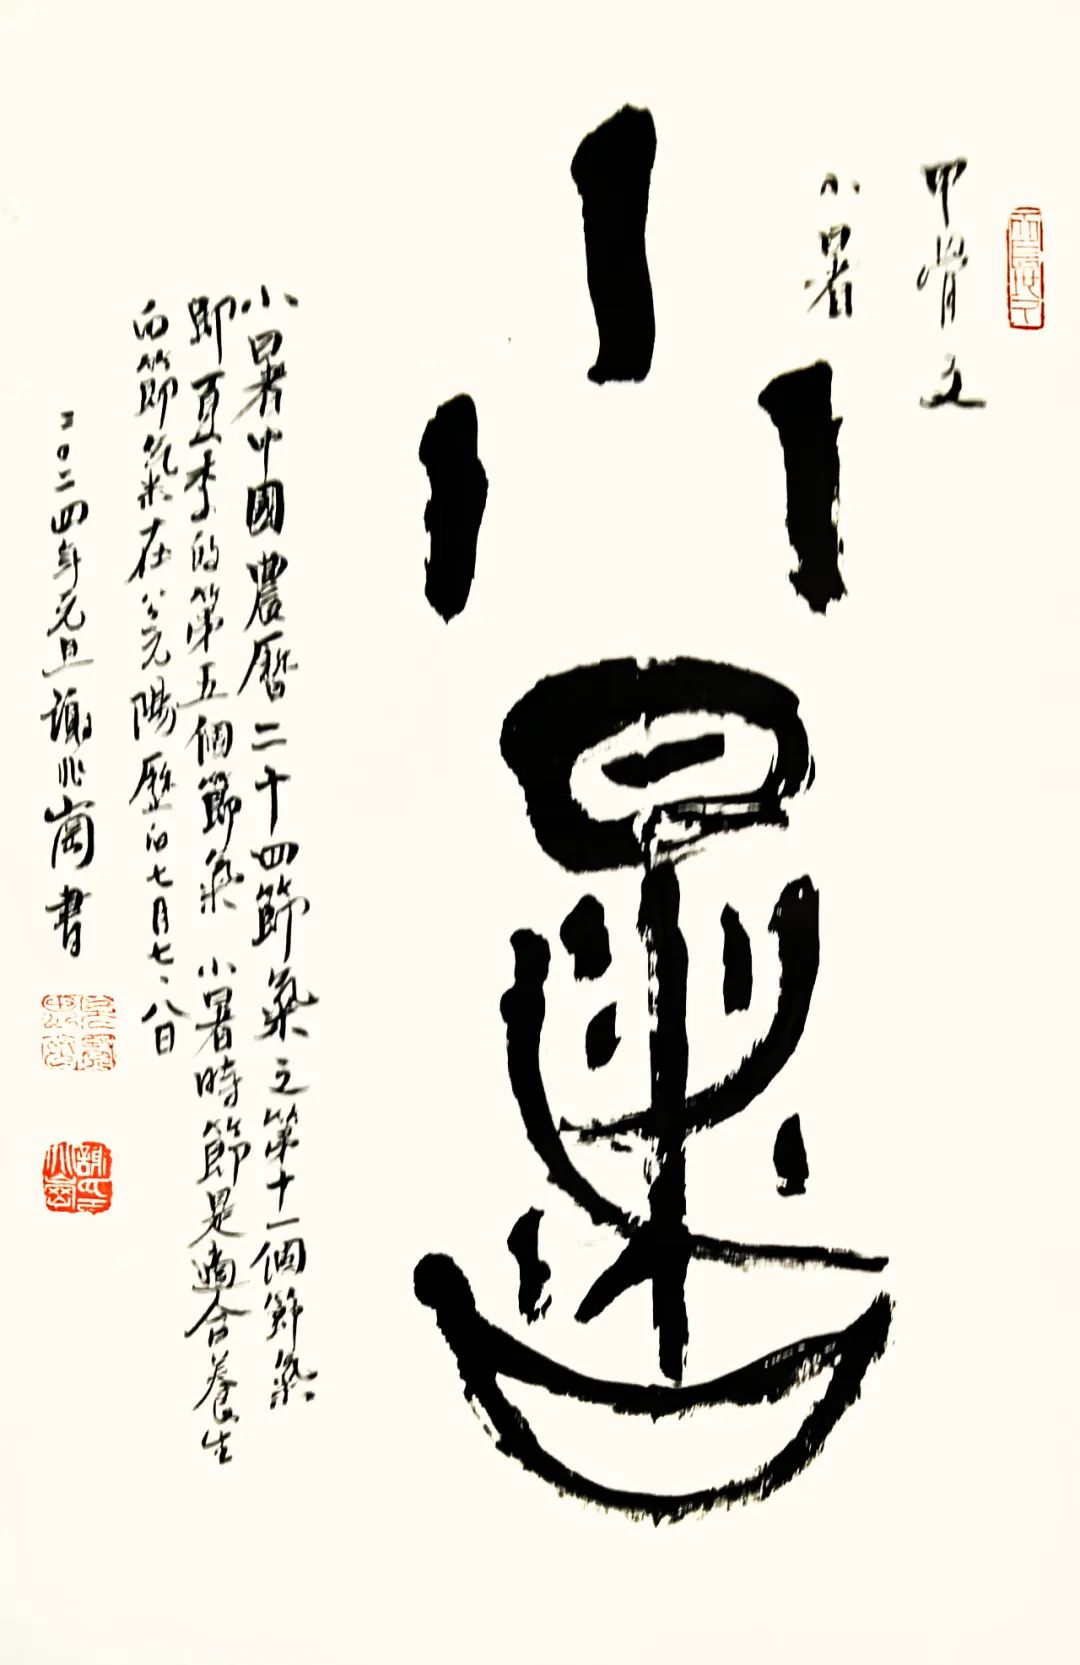 甲骨文
小暑
小暑
小暑中國農曆二十四節氣之第十一個節氣
即夏季的第五個節氣 小暑時節是適合養生
的節氣在公元陽歷的七月七、八日
二〇二四年元旦謝兆崗書